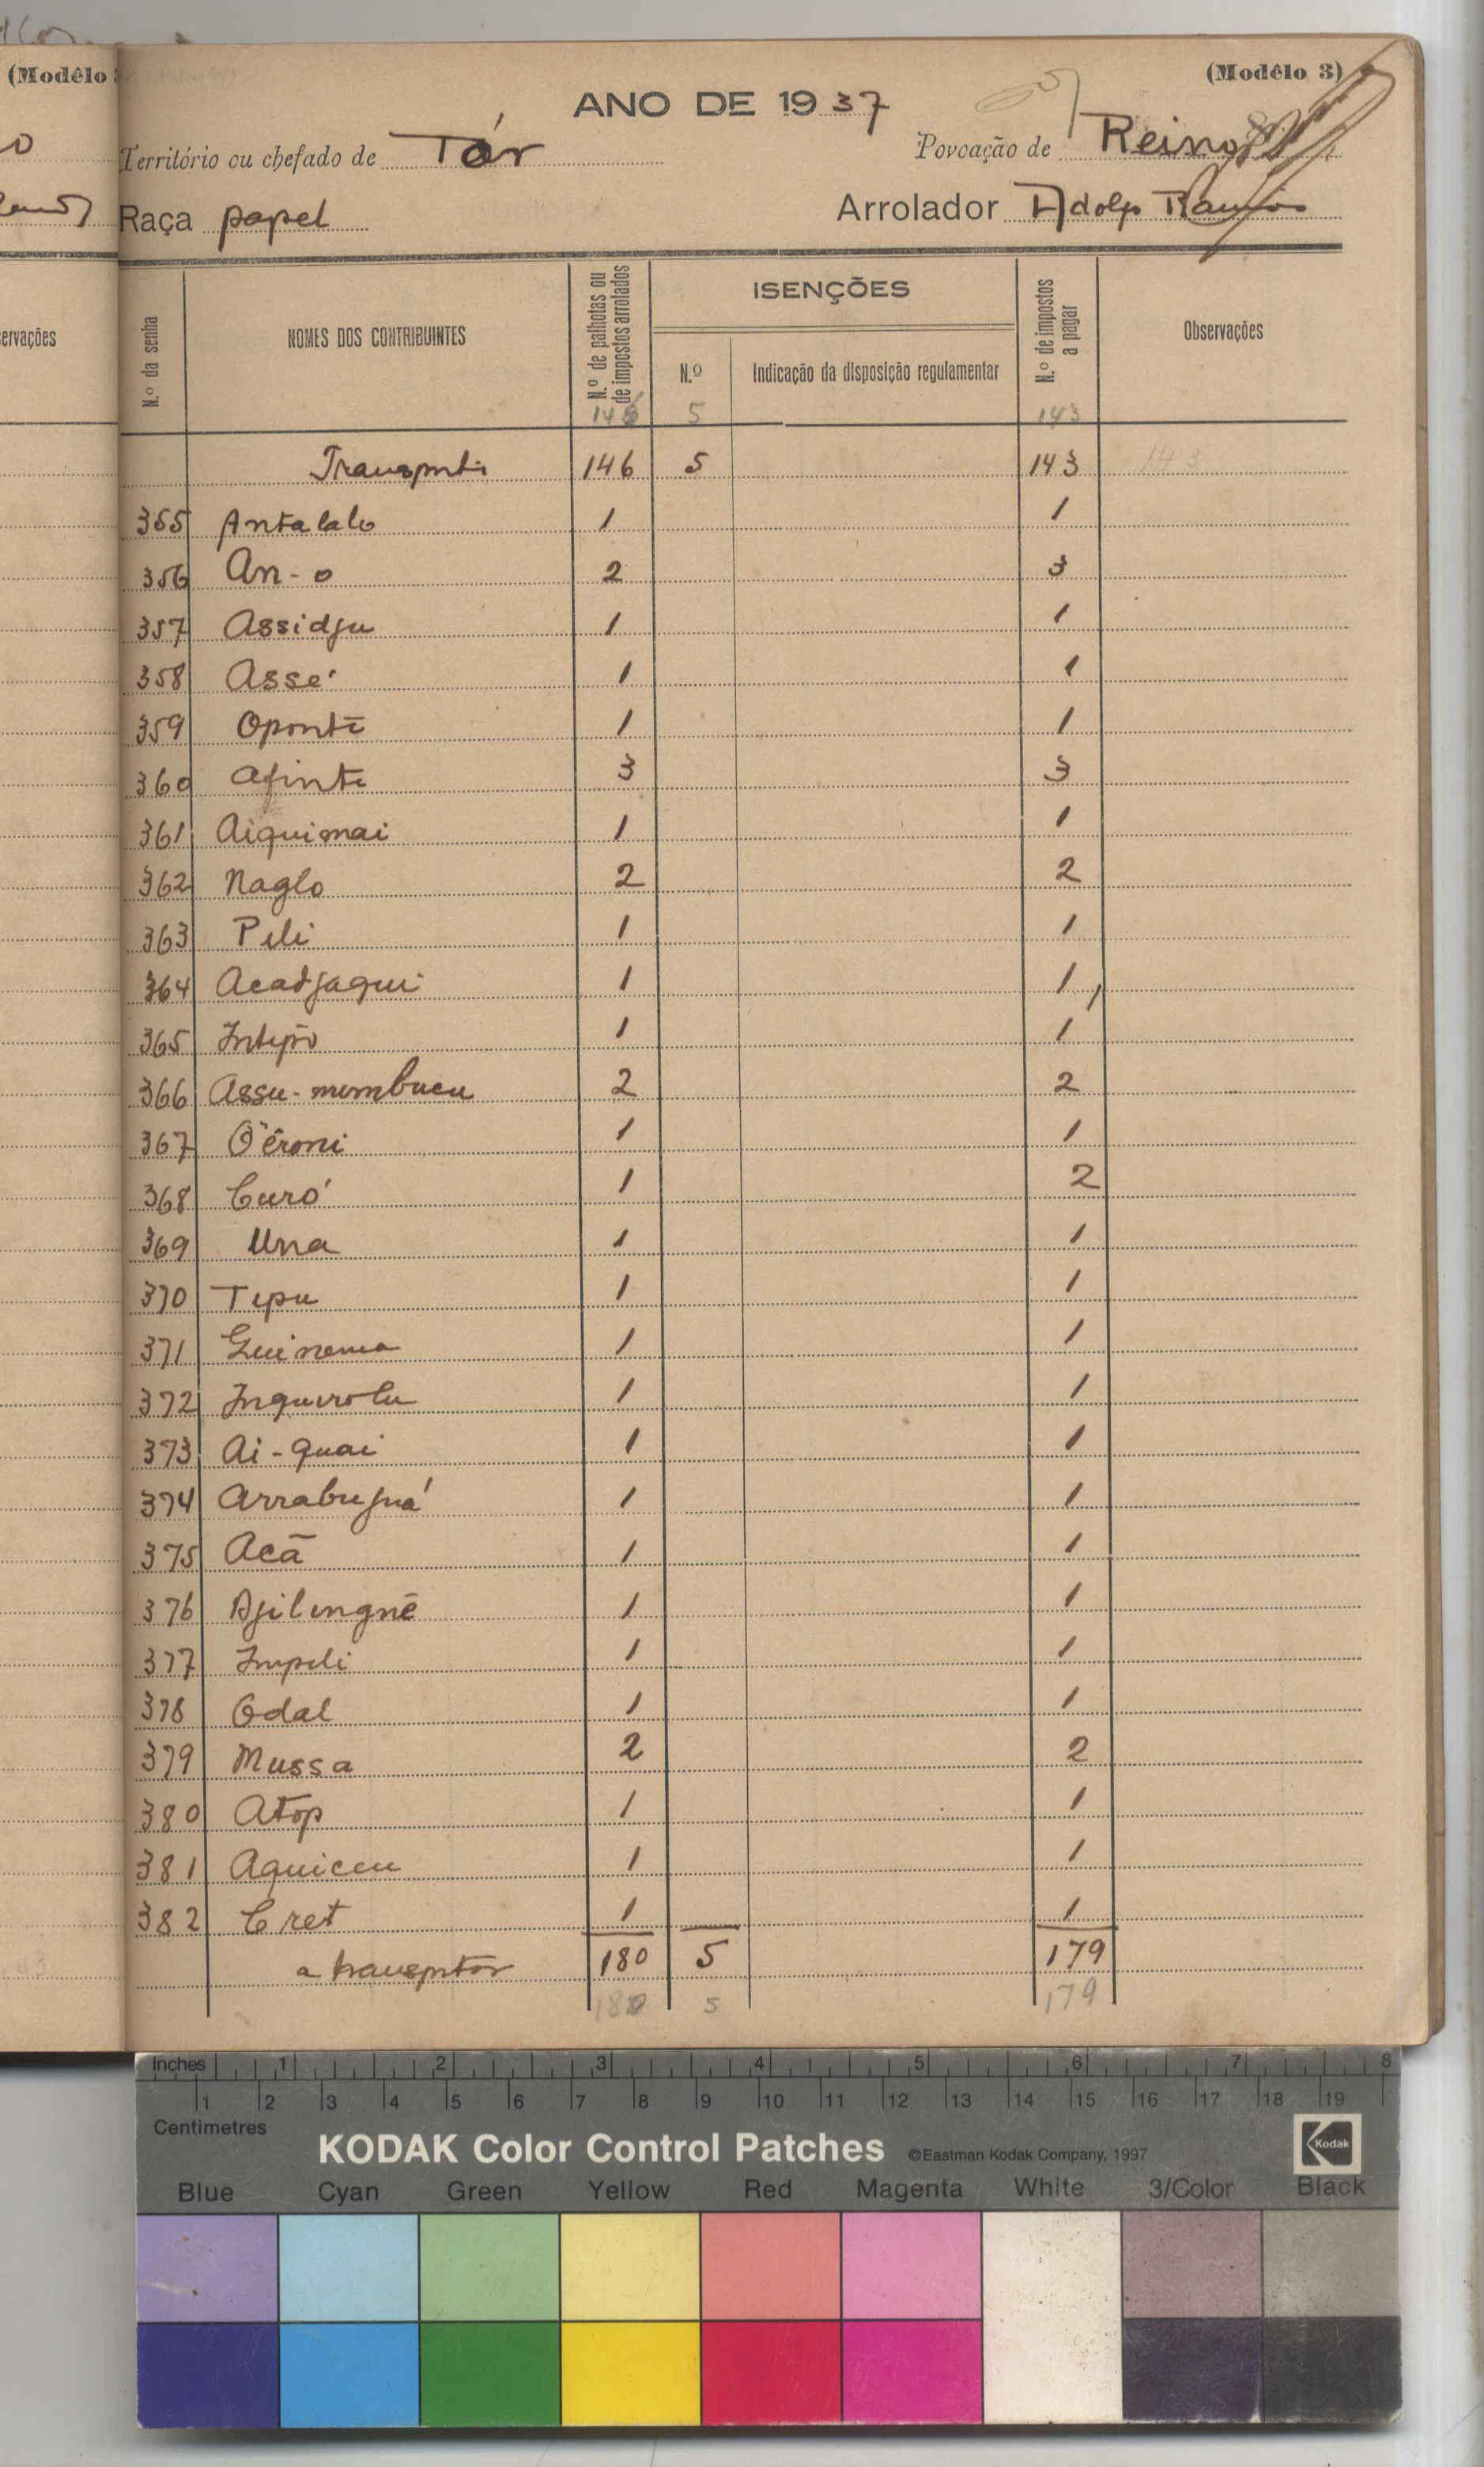 (Modêlo
(Modêlo 3)
ANO DE 1937
Território ou chefado de Tór
Povoação de Reino
Raça papel
Arrolador Adolfo Ramos
ervações
N.º da senha
NOMES DOS CONTRIBUINTES
N.º de palhotas ou de impostos arrolados
ISENÇÕES
N.º
Indicação da disposição regulamentar
N.º de impostos a pagar
Observações
146 5 143
Transporte 146 5 143 143
355 Antalalo 1 1
356 An-o 2 3
357 Assidju 1 1
358 Assé 1 1
359 Oponte 1 1
360 Afinte 3 3
361 Aiquimai 1 1
362 Naglo 2 2
363 Pili 1 1
364 Acadjaqui 1 1
365 1 1
366 Assu-mumbucu 2 2
367 Oêroni 1 1
368 Curó 1 2
369 Una 1 1
370 Tepu 1 1
371 Guinema 1 1
372 Inquirolu 1 1
373 Ai-quai 1 1
374 Arrabujuá 1 1
375 Acã 1 1
376 Djilingnê 1 1
377 Impili 1 1
378 Odal 1 1
379 Mussa 2 2
380 Atop 1 1
381 Aquiceu 1 1
382 Cret 1 1
a transportar 180 5 179
180 5 179
Inches 1 2 3 4 5 6 7 8
1 2 3 4 5 6 7 8 9 10 11 12 13 14 15 16 17 18 19
Centimetres
KODAK Color Control Patches ©Eastman Kodak Company, 1997 Kodak
Blue Cyan Green Yellow Red Magenta White 3/Color Black